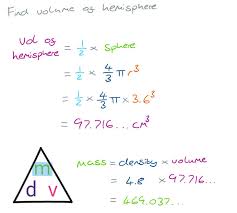 Find volume of hemisphere
Vol of hemisphere = 1/2 × Sphere
= 1/2 × 4/3 π r³
= 1/2 × 4/3 π × 3.6³
= 97.716... cm³
m
d v
mass = density × volume
= 4.8 × 97.716...
= 469.037...